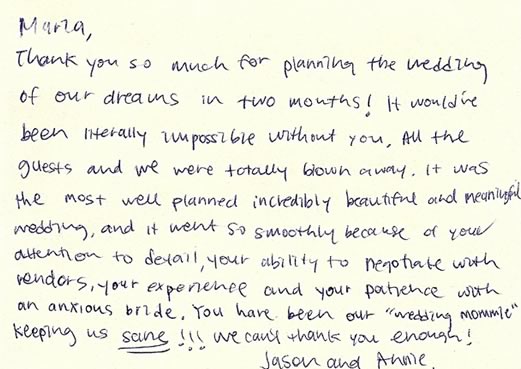 Maria,
Thank you so much for planning the wedding
of our dreams in two months! It would've
been literally impossible without you. All the
guests and we were totally blown away. It was
the most well planned incredibly beautiful and meaningful
wedding, and it went so smoothly because of your
attention to detail, your ability to negotiate with
vendors, your experience and your patience with
an anxious bride. You have been our "wedding mommie"
keeping us sane !!! We can't thank you enough!
Jason and Annie.